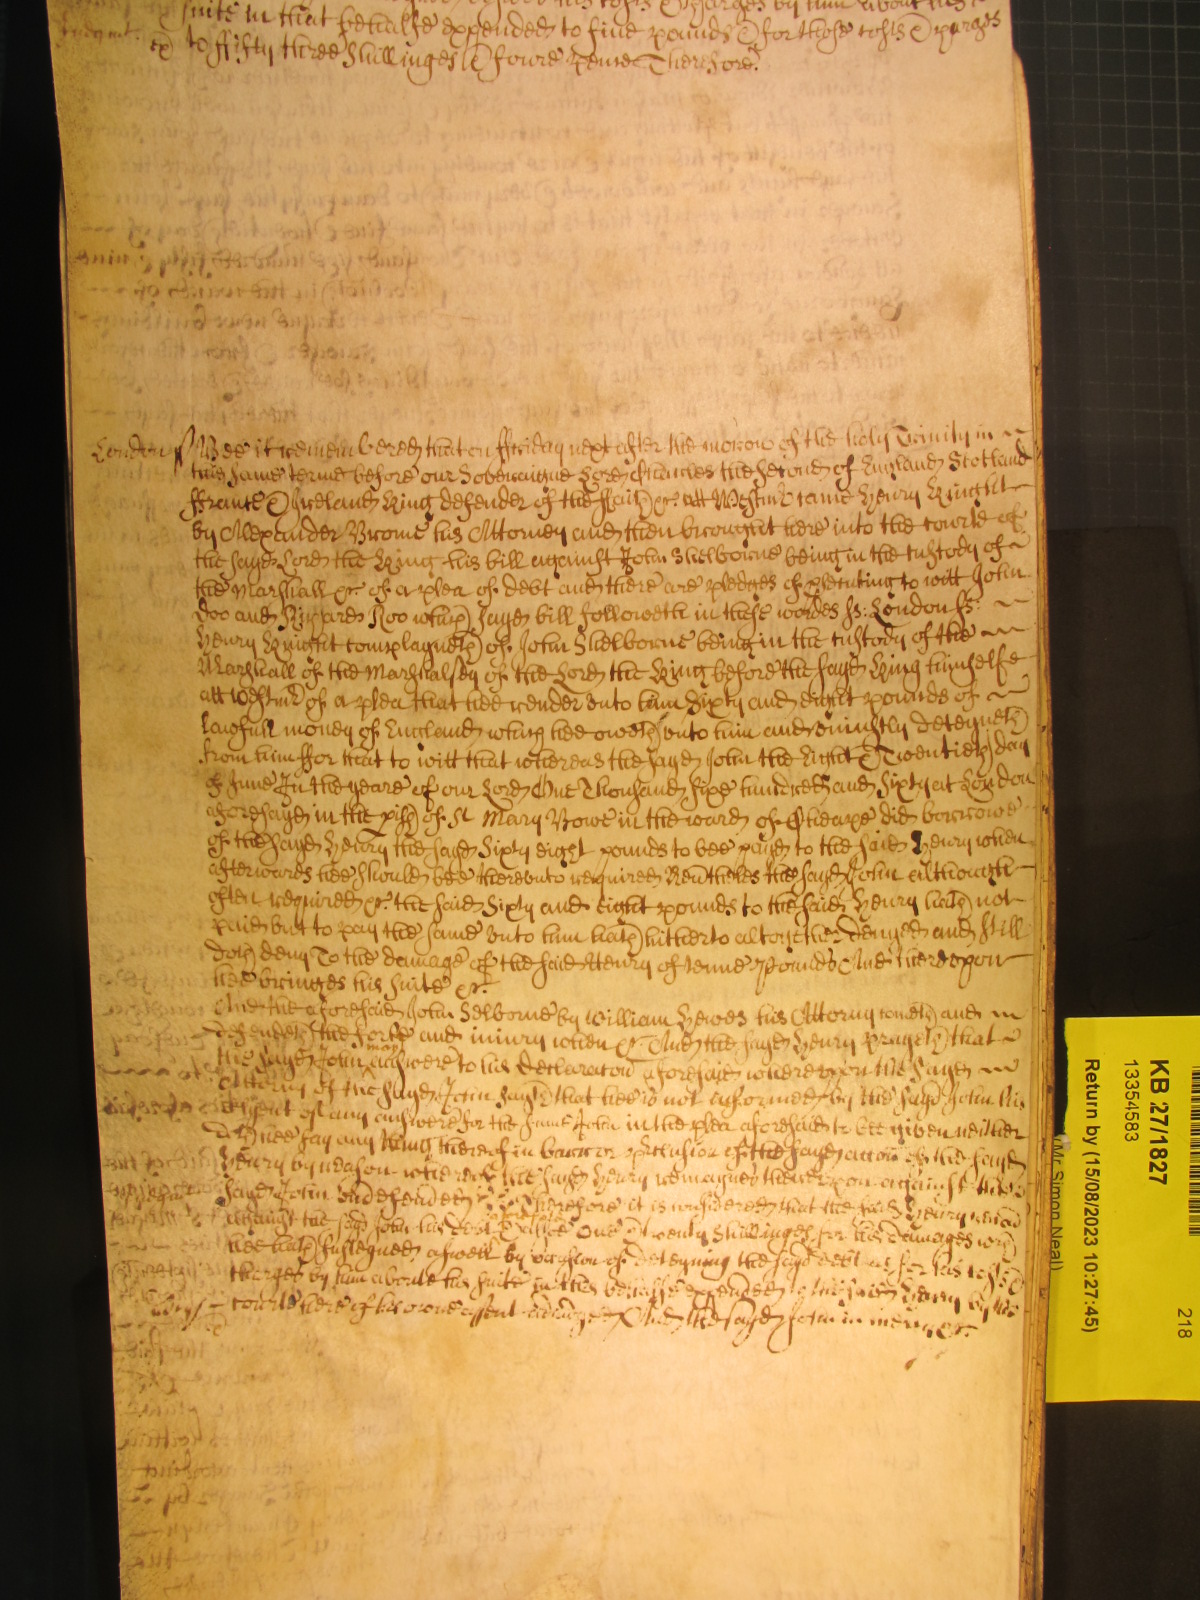 suite in that behalfe expended to five pounds & for those costs & charges
Judgmt. to fifty three Shillinges & foure pence Therefore &c
London ss Bee it remembered that on ffriday next after the morow of the holy Trinity in
this same terme before our Soveraigne Lord Charles the Second of England Scotland
ffrance & Ireland King defender of the ffaith &c. att Westmr came Henry Knight
by Alexander Brome his Attorney and then brought here into the Courte of
the sayd Lord the King his bill against John Shelborne being in the custody of
the Marshall &c. of a plea of debt and there are pledges of prosecuting to witt John
Doo and Richard Roo which sayd bill followeth in these wordes ss: London ss:
Henry Knight complayneth of John Shelborne being in the custody of the
Marshall of the Marshalsey of the Lord the King before the sayd King himselfe
att Westmr of a plea that hee render unto him Sixty and eight pounds of
lawfull money of England which hee oweth unto him and uniustly deteyneth
from him ffor that to witt that whereas the sayd John the Eight & Twentieth day
of June In the yeare of our Lord One Thousand Sixe hundred and Sixty at London
aforesayd in the pish of St Mary Bowe in the ward of Cheape did borrowe
of the sayd Henry the sayd Sixty eight pounds to bee payd to the said Henry when
afterwards hee should bee thereunto required Nevtheles the sayd John although
often required &c. the said Sixty and eight pounds to the said Henry hath not
paid but to pay the same unto him hath hitherto altogether denyed and still
doth deny To the damage of the said Henry of tenne Pounds And thereupon
hee bringes his suite &c.
And the aforesaid John Selborne by William Hewes his Attorny cometh and
defendeth the force and iniury when &c And the sayd Henry prayeth that
the sayd John may answere to his declaracon aforesaid whereupon the sayd
Attorny of the sayd John sayth that hee is not informed by the sayd John his
Clyent of any answere for the same John in the plea aforesaid to bee given neither
doth hee say any thing thereof in barr or preclusion of the sayd accon of the sayd
Henry by reason whereof the sayd Henry remaynes thereupon against the
sayd John undefended Therefore it is considered that the said Henry recov
against the sayd John his debt & alsoe One & twenty Shillinges for his damages wch
hee hath susteyned aswell by occasion of deteyning the sayd debt as for his costs &
charges by him aboute his suite in this behalfe expended to the said Henry by the
Courte here of his owne assent adiudged And the sayd John in mercy &c.
KB 27/1827
13354583
Return by (15/08/2023 10:27:45)
218
(Mr Simon Neal)